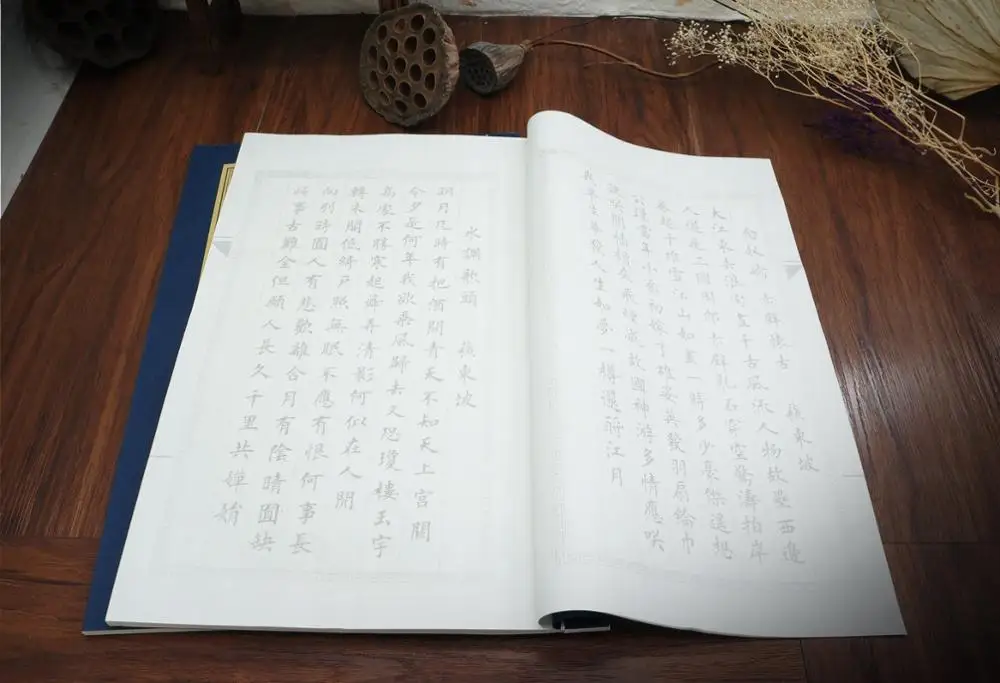 念奴嬌 赤壁懷古 蘇東坡
大江東去浪淘盡千古風流人物故壘西邊
人道是三國周郎赤壁亂石穿空驚濤拍岸
卷起千堆雪江山如畫一時多少豪傑遙想
公瑾當年小喬初嫁了雄姿英發羽扇綸巾
談笑間檣櫓灰飛煙滅故國神游多情應笑
我早生華發人生如夢一樽還酹江月
水調歌頭 蘇東坡
明月几時有把酒問青天不知天上宮闕
今夕是何年我欲乘風歸去又恐瓊樓玉宇
高處不勝寒起舞弄清影何似在人間
轉朱閣低綺戶照無眠不應有恨何事長
向別時圓人有悲歡離合月有陰晴圓缺
此事古難全但願人長久千里共嬋娟